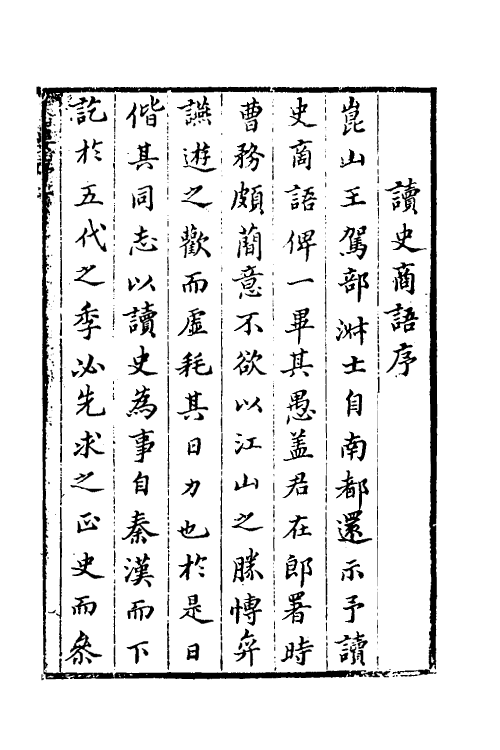 讀史商語序
崑山王駕部淋士自南都還示予讀
史商語俾一畢其愚盖君在郎署時
曹務頗蕳意不欲以江山之勝愽弈
讌遊之歡而虛耗其日力也於是日
偕其同志以讀史為事自秦漢而下
訖於五代之季必先求之正史而叅